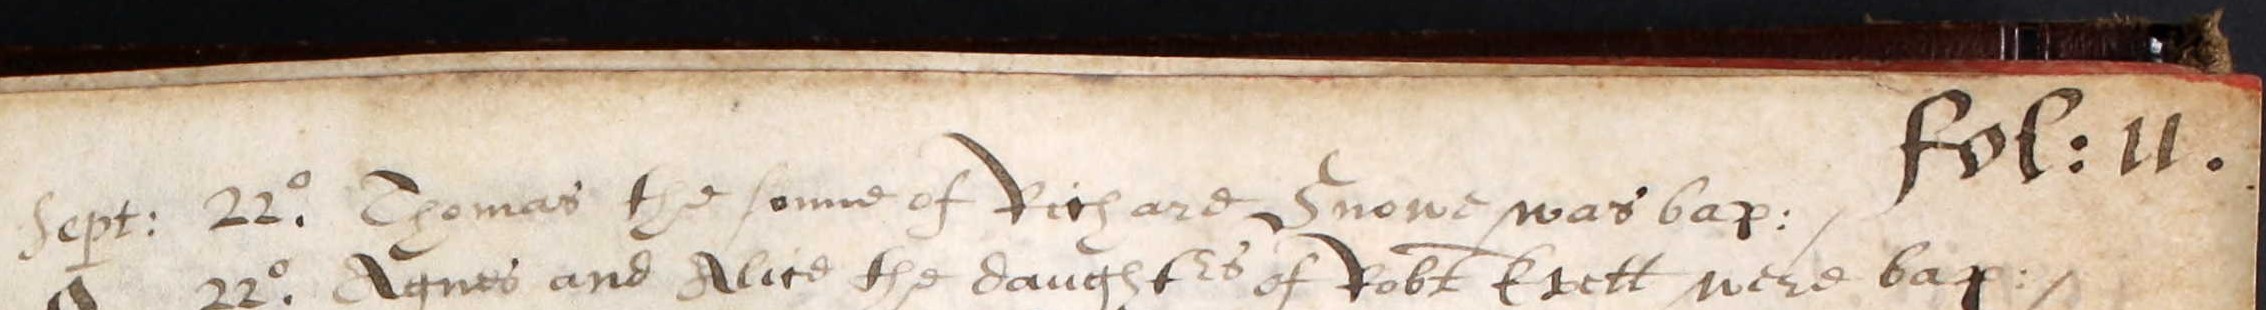 fol: 11.
Sept: 22º. Thomas the sonne of Richard Snowe was bap:
22º. Agnes and Alice the daughters of Robt were bap: